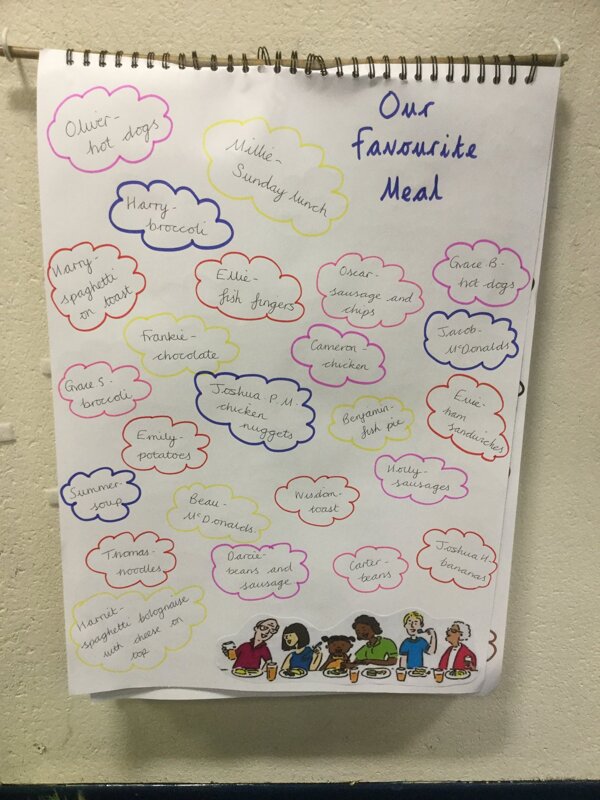 Our
Favourite
Meal
Oliver-
hot dogs
Millie-
Sunday lunch
Harry-
broccoli
Harry-
spaghetti
on toast
Ellie-
fish fingers
Oscar-
sausage and
chips
Grace B-
hot dogs
Frankie-
chocolate
Cameron-
chicken
Jacob-
McDonalds
Grace S-
broccoli
Joshua P.M-
chicken
nuggets
Benjamin-
fish pie
Evie-
ham
sandwiches
Emily-
potatoes
Holly-
sausages
Summer-
soup
Beau-
McDonalds
Wisdom-
toast
Thomas-
noodles
Darcie-
beans and
sausage
Carter-
beans
Joshua H-
bananas
Harriet-
spaghetti bolognaise
with cheese on
top